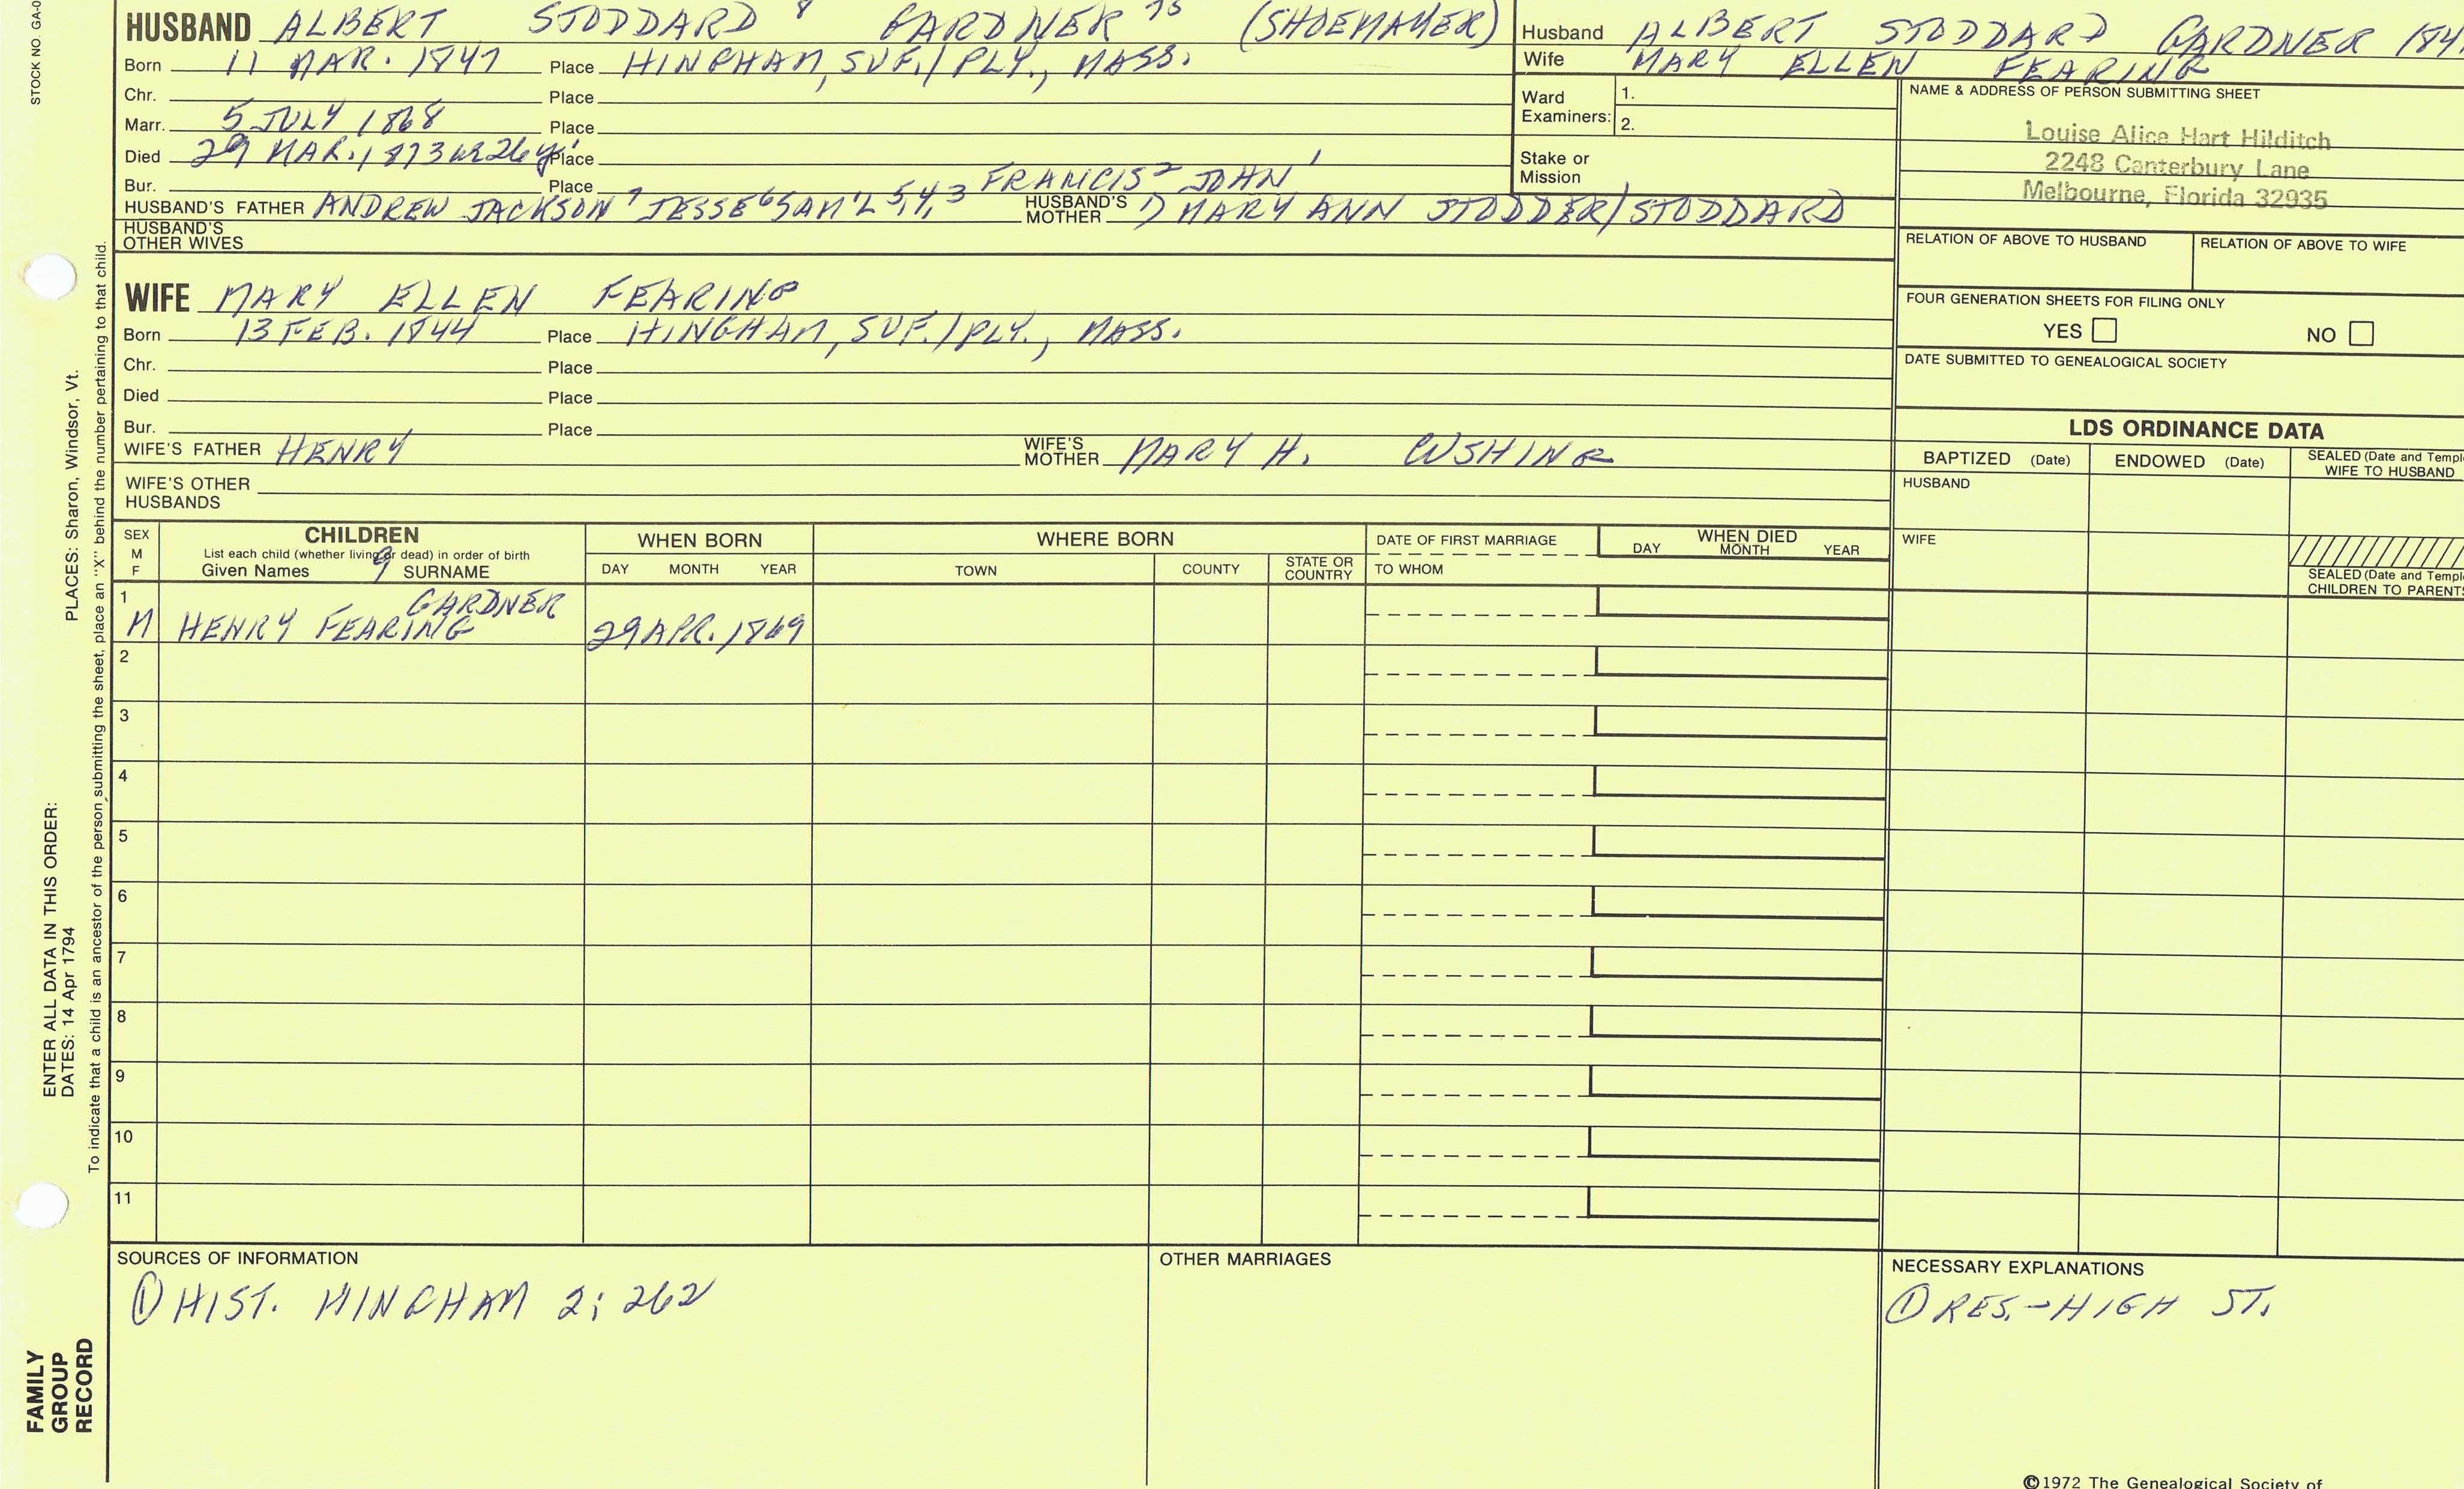 STOCK NO. GA-0
HUSBAND ALBERT STODDARD 8 GARDNER 75 (SHOEMAKER)
Born 11 MAR. 1847 Place HINGHAM, SUF./PLY., MASS.
Chr. Place
Marr. 5 JULY 1868 Place
Died 29 MAR. 1873 Æ 26 y. Place
Bur. Place
HUSBAND'S FATHER ANDREW JACKSON 7 JESSE 6 SAM'L 5,4,3 FRANCIS 2 JOHN 1 HUSBAND'S MOTHER 1) MARY ANN STODDER/STODDARD
HUSBAND'S OTHER WIVES
WIFE MARY ELLEN FEARING
Born 13 FEB. 1844 Place HINGHAM, SUF./PLY., MASS.
Chr. Place
Died Place
Bur. Place
WIFE'S FATHER HENRY WIFE'S MOTHER MARY H. CUSHING
WIFE'S OTHER HUSBANDS
Husband ALBERT STODDARD GARDNER 184
Wife MARY ELLEN FEARING
Ward Examiners: 1.
2.
Stake or Mission
NAME & ADDRESS OF PERSON SUBMITTING SHEET
Louise Alice Hart Hilditch
2248 Canterbury Lane
Melbourne, Florida 32935
RELATION OF ABOVE TO HUSBAND RELATION OF ABOVE TO WIFE
FOUR GENERATION SHEETS FOR FILING ONLY
YES NO
DATE SUBMITTED TO GENEALOGICAL SOCIETY
LDS ORDINANCE DATA
BAPTIZED (Date) ENDOWED (Date) SEALED (Date and Templ
WIFE TO HUSBAND
HUSBAND
WIFE
SEALED (Date and Templ
CHILDREN TO PARENTS
SEX
M
F
CHILDREN
List each child (whether living or dead) in order of birth
Given Names 9 SURNAME
WHEN BORN
DAY MONTH YEAR
WHERE BORN
TOWN COUNTY STATE OR COUNTRY
DATE OF FIRST MARRIAGE
TO WHOM
WHEN DIED
DAY MONTH YEAR
1
GARDNER
M HENRY FEARING 29 APR. 1869
2
3
4
5
6
7
8
9
10
11
SOURCES OF INFORMATION
① HIST. HINGHAM 2; 262
OTHER MARRIAGES
NECESSARY EXPLANATIONS
① RES.-HIGH ST.
©1972 The Genealogical Society of
PLACES: Sharon, Windsor, Vt.
ENTER ALL DATA IN THIS ORDER:
DATES: 14 Apr 1794
To indicate that a child is an ancestor of the person submitting the sheet, place an "X" behind the number pertaining to that child.
FAMILY
GROUP
RECORD